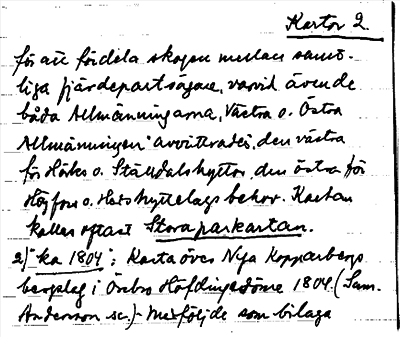 Kartor 2.
för att fördela skogen mellan samt-
liga fjärdepartsägare, varvid även de
båda Allmänningarna, Västra o. Östra
Allmänningen avvittrades, den västra
för Hörks o. Ställdalshyttor, den östra för
Högfors o. Hammarhyttelags behov. Kartan
kallas oftast Storaparkartan.
2) "ka 1804": Karta över Nya Kopparbergs
bergslag i Örebro Höfdingedöme 1804. (Sam.
Anderson sc.) - Medföljde som bilaga